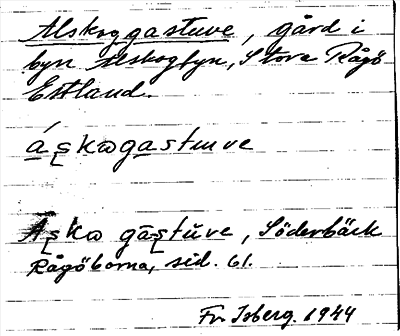 Alskoggastuve, gård i
byn Alskogbyn, Stora Rågö
Estland.
áskωgastuve
Askω gāstŭve, Söderbäck
Rågöborna, sid. 61.
Fr. Isberg. 1944